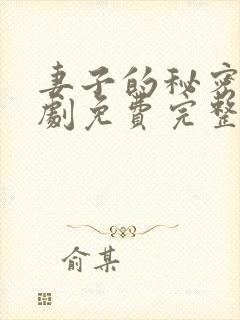 妻子的秘密
劇免費完整
俞某